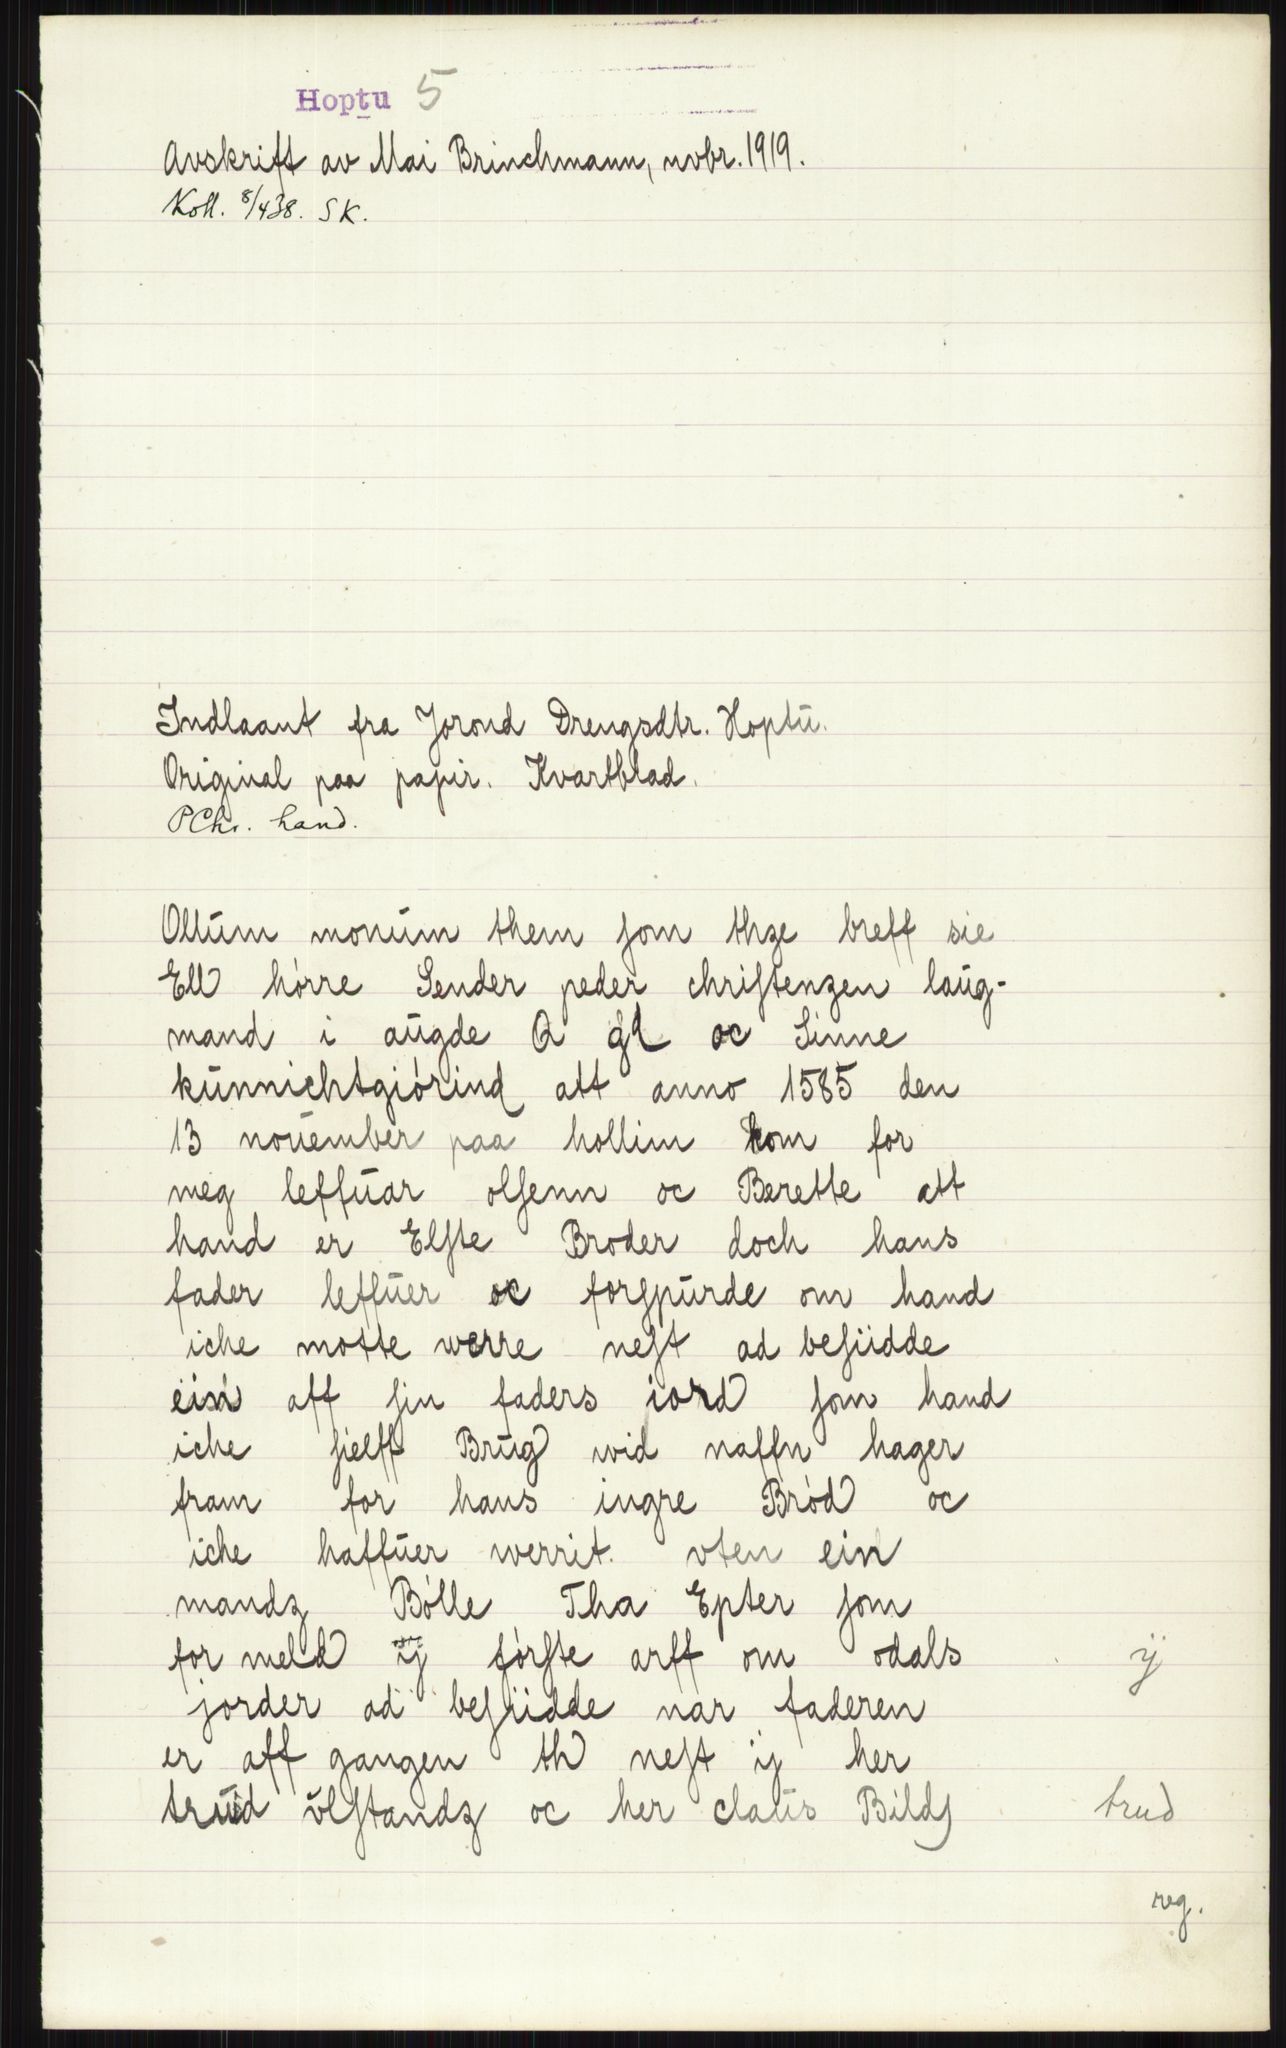 Hoptu 5
Avskrift av Mai Brinchmann, nvbr. 1919.
Koll. 8/438. SK.
Indlaant fra Jorond Drengsdtr. Hoptū.
Original paa papir. Kvartblad.
PChr. hand.
Ollūm monūm them som thze breff sie
Ell hórre Sender peder christenzen laūg-
mand i aūgde Q gl oc Sinne
kūnnichtgiórind att anno 1585 den
13 noūember paa hollim kom for
meg leffūar olsenn oc Berette att
hand er Elste Broder doch hans
fader leffūer oc forspūrde om hand
iche motte werre nest ad besiidde
ein aff sin faders iord som hand
iche sielff Brūg wid naffn hager
fram for hans ingre Bród oc
iche haffūer werrit. vten ein
mandz Bólle Tha Epter som
for meld ij fórste arff om odals ij
jorder ad besiidde nar faderen
er aff gangen th nest ij her
trūd ūlstandz oc her claūs Bilds trud
reg.